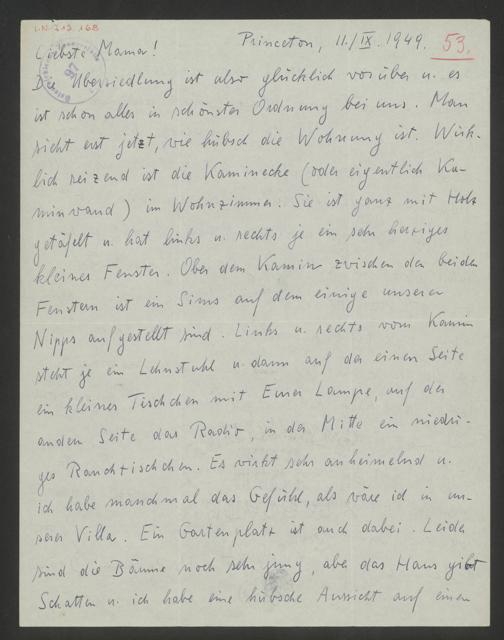 I.N. 213.168
Princeton, 11./IX. 1949. 53.
Liebste Mama!
Die Übersiedlung ist also glücklich vorüber u. es
ist schon alles in schönster Ordnung bei uns. Man
sieht erst jetzt, wie hübsch die Wohnung ist. Wirk-
lich reizend ist die Kaminecke (oder eigentlich Ka-
minwand) im Wohnzimmer. Sie ist ganz mit Holz
getäfelt u. hat links u. rechts je ein sehr herziges
kleines Fenster. Ober dem Kamin zwischen den beiden
Fenstern ist ein Sims auf dem einige unserer
Nipps aufgestellt sind. Links u. rechts vom Kamin
steht je ein Lehnstuhl u. dann auf der einen Seite
ein kleines Tischchen mit Eurer Lampe, auf der
anderen Seite das Radio, in der Mitte ein niedri-
ges Rauchtischchen. Es wirkt sehr anheimelnd u.
ich habe manchmal das Gefühl, als wäre ich in un-
serer Villa. Ein Gartenplatz ist auch dabei. Leider
sind die Bäume noch sehr jung, aber das Haus gibt
Schatten u. ich habe eine hübsche Aussicht auf einen